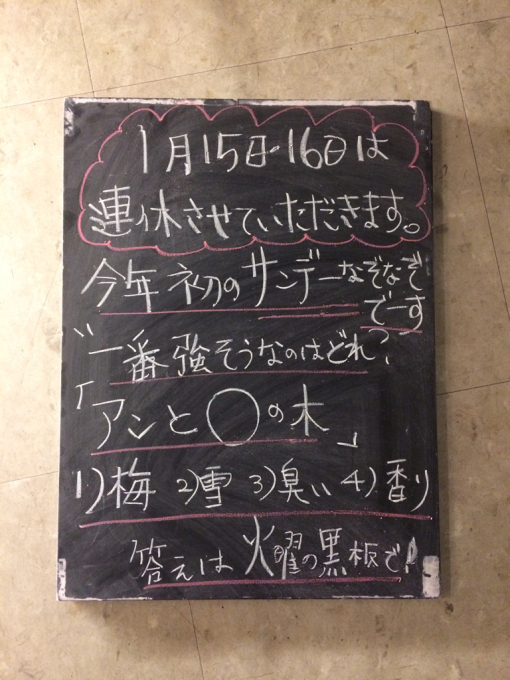 1月15日・16日は
連休させていただきます。
今年初のサンデーなぞなぞ
でーす
〝一番強そうなのはどれ?
「アンと〇の木」
1)梅 2)雪 3)臭い 4)香り
答えは火曜の黒板で!